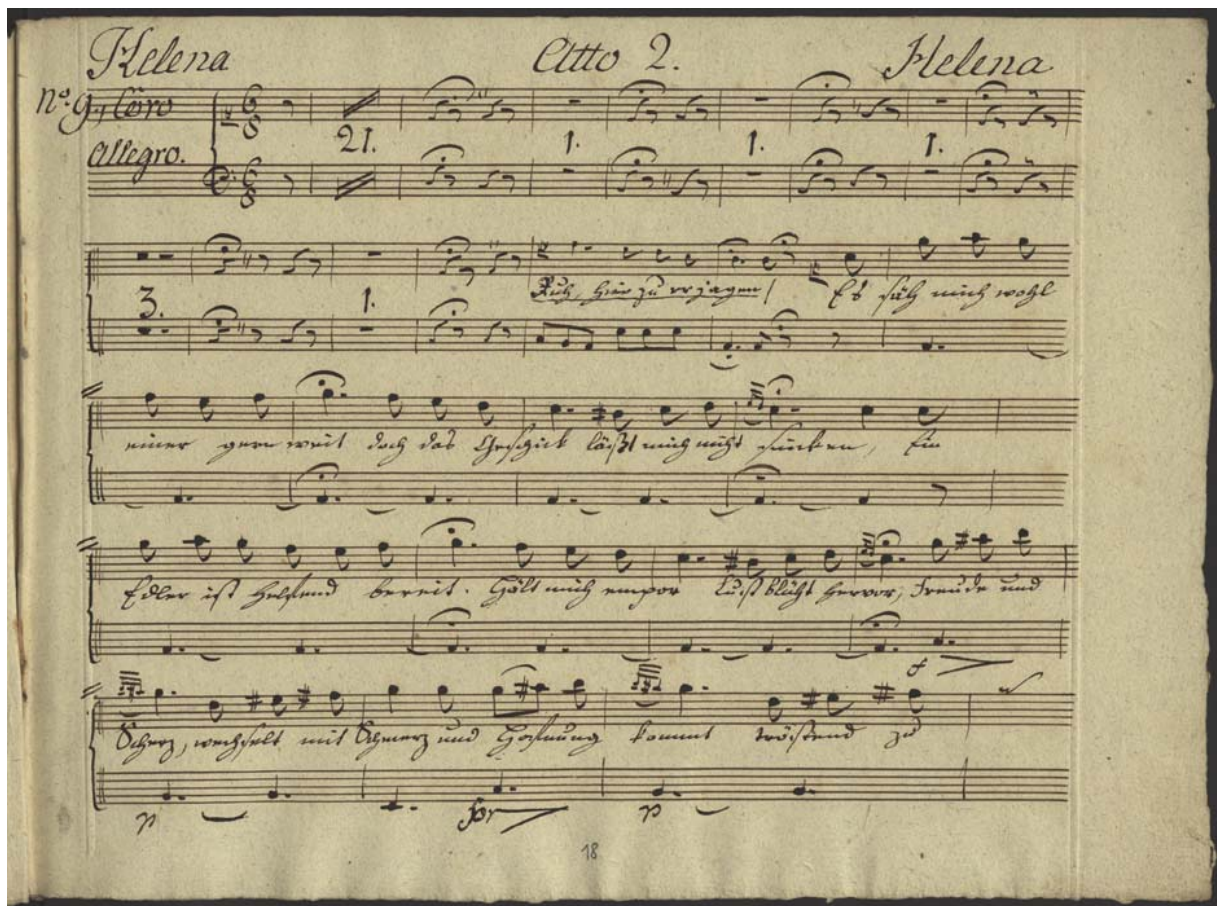 Helena Atto 2. Helena
No. 9, Coro
Allegro.
21. 1. 1. 1.
3. 1.
hier zu verjagen! Es säh mich wohl
einer gern weit doch das Geschick läßt mich nicht sinken, Ein
Edler ist helfend bereit. Hält mich empor Lust blüht hervor, Freude und
Scherz, wechselt mit Schmerz und Hofnung kommt tröstend zu
p for p
18